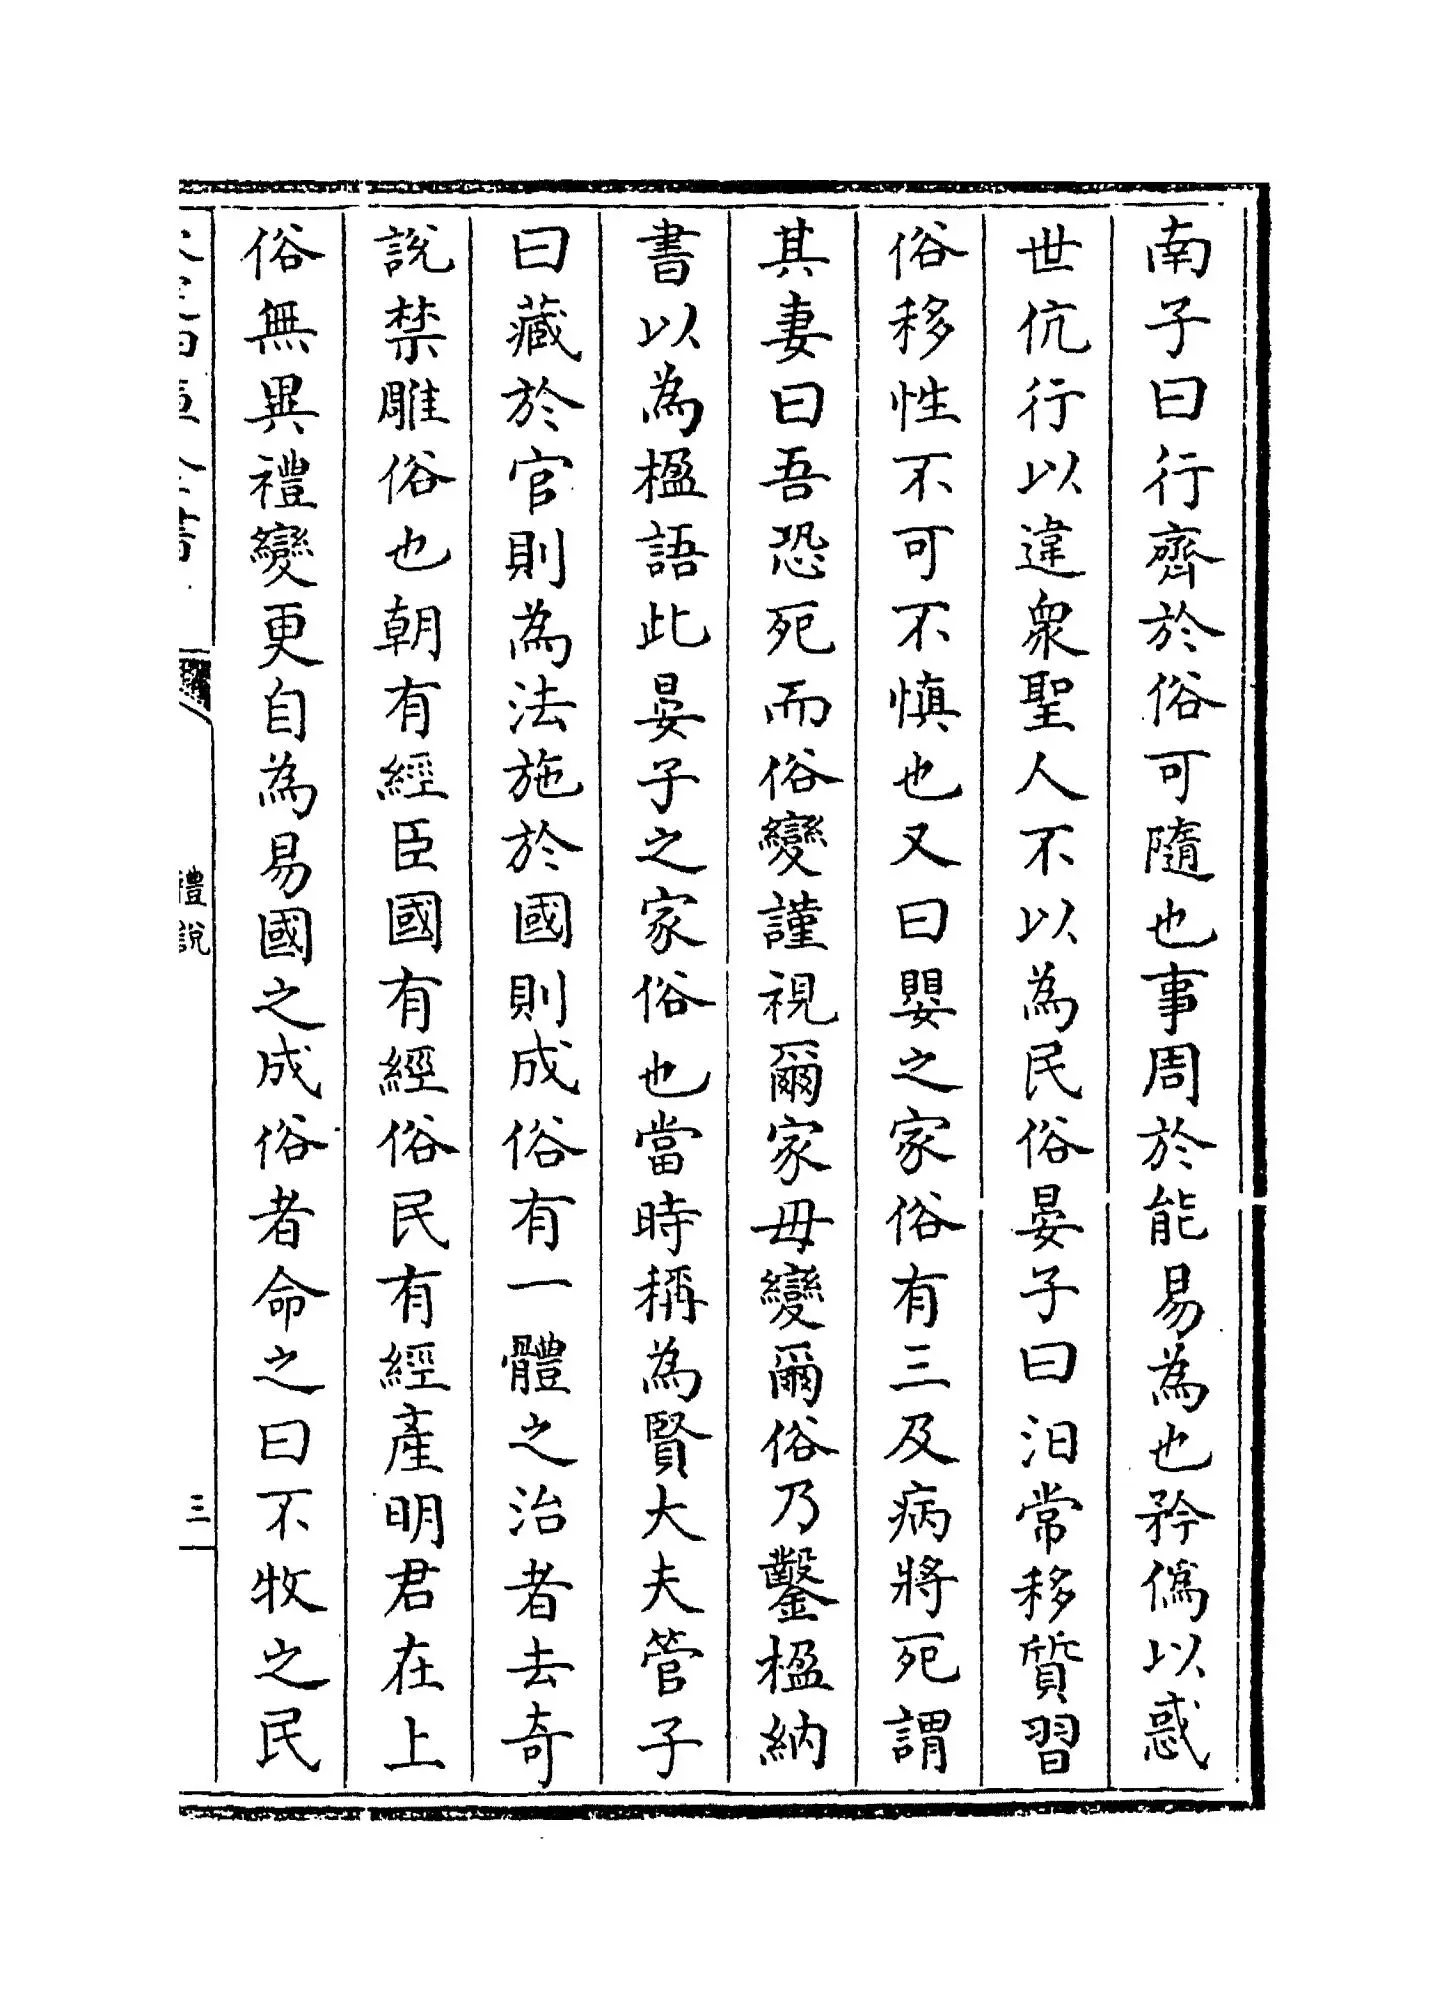 南子曰行齊於俗可隨也事周於能易為也矜僞以惑
世伉行以違衆聖人不以為民俗晏子曰汨常移質習
俗移性不可不慎也又曰嬰之家俗有三及病將死謂
其妻曰吾恐死而俗變謹視爾家毋變爾俗乃鑿楹納
書以為楹語此晏子之家俗也當時稱為賢大夫管子
曰藏於官則為法施於國則成俗有一體之治者去奇
說禁雕俗也朝有經臣國有經俗民有經產明君在上
俗無異禮變更自為易國之成俗者命之曰不牧之民
禮說
三